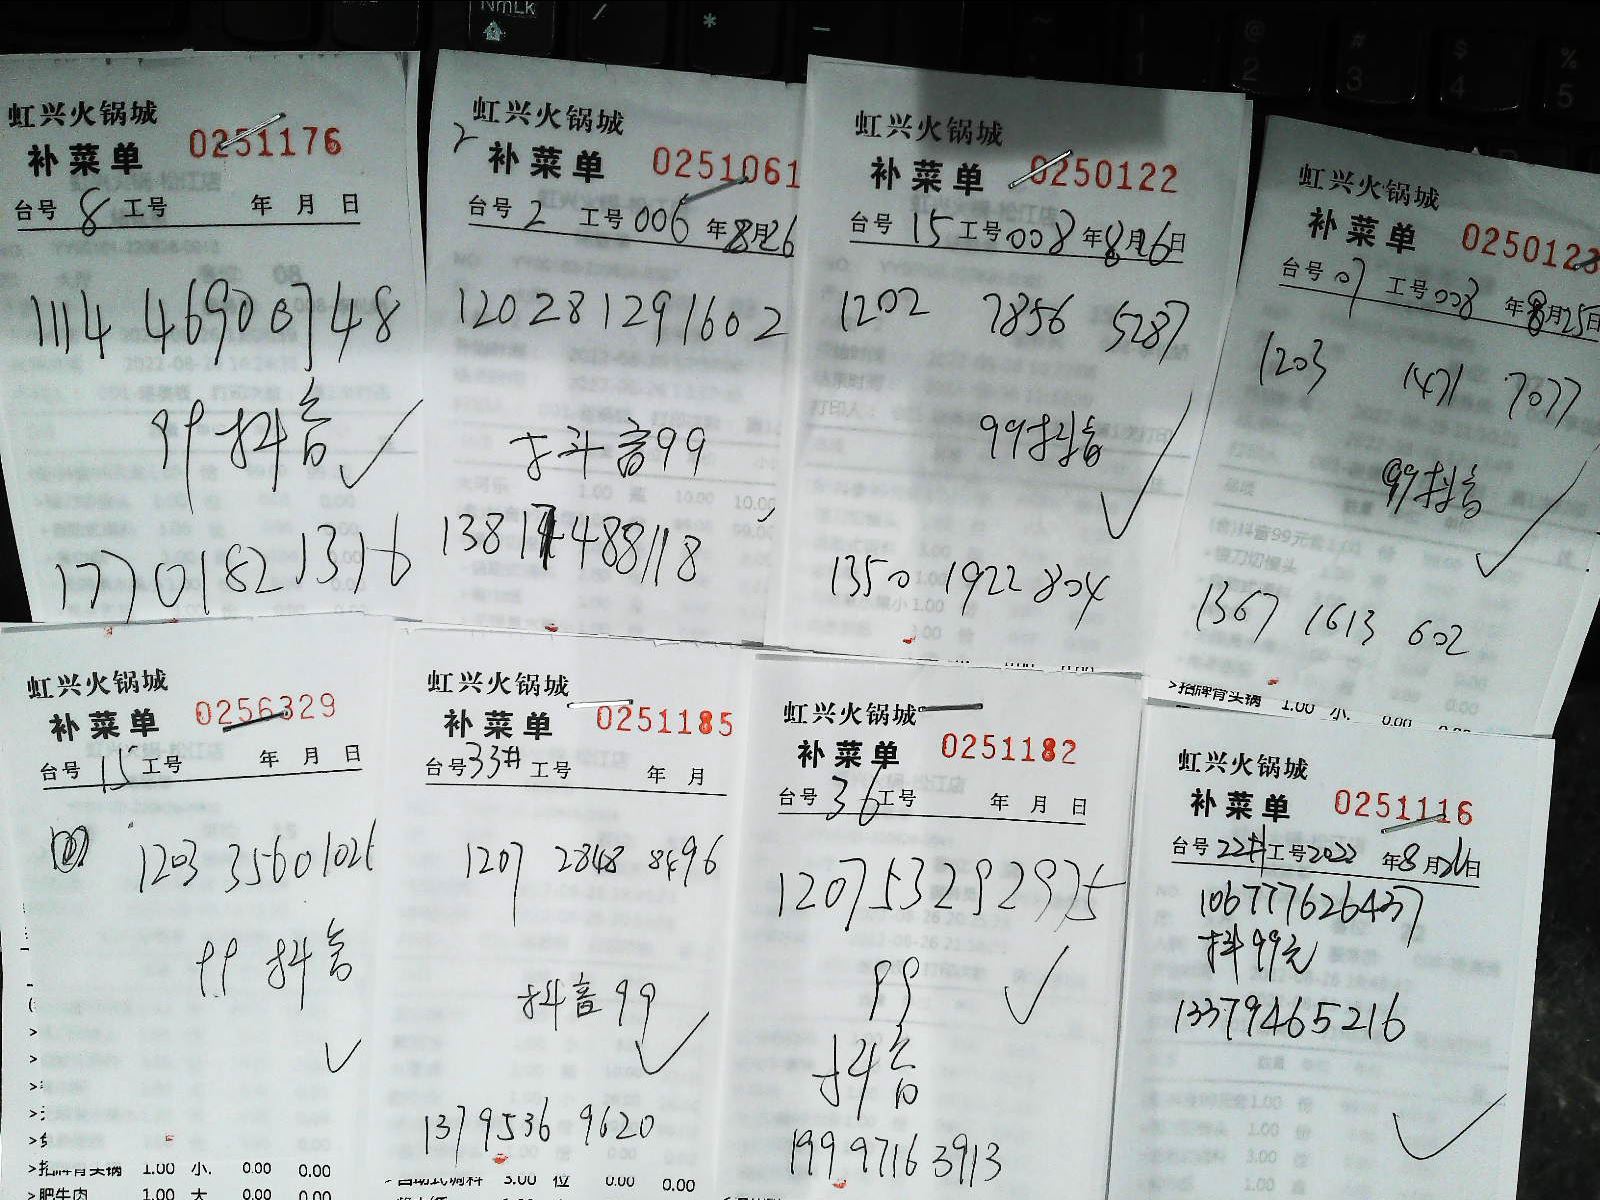 虹兴火锅城
补菜单 0251176
台号 8 工号 年 月 日
1114 46900748
99抖音
17701821316
虹兴火锅城
2 补菜单 0251061
台号 2 工号 006 年 8月26
120281291602
抖音99
488118
虹兴火锅城
补菜单 0250122
台号 15 工号 008 年 8月26日
1202 7856 5287
99抖音
1350 1922 804
虹兴火锅城
补菜单 0250123
台号 07 工号 008 年 8月25日
1203 1471 7077
99抖音
1367 1613 602
>招牌骨头锅 1.00 小. 0.00 0.00
虹兴火锅城
补菜单 0256329
台号 15 工号 年 月 日
1203 3560 1025
99 抖音
>招牌骨头锅 1.00 小. 0.00 0.00
>肥牛肉 1.00 大 0.00 0.00
虹兴火锅城
补菜单 0251185
台号 33# 工号 年 月
1207 2848 8496
抖音99
1379536 9620
>自助式调料 3.00 位 0.00 0.00
虹兴火锅城
补菜单 0251182
台号 36 工号 年 月 日
120753292975
99
抖音
199 9716 3913
虹兴火锅城
补菜单 0251116
台号 22# 工号 2022 年 8月26日
106777626437
抖99元
13379465216